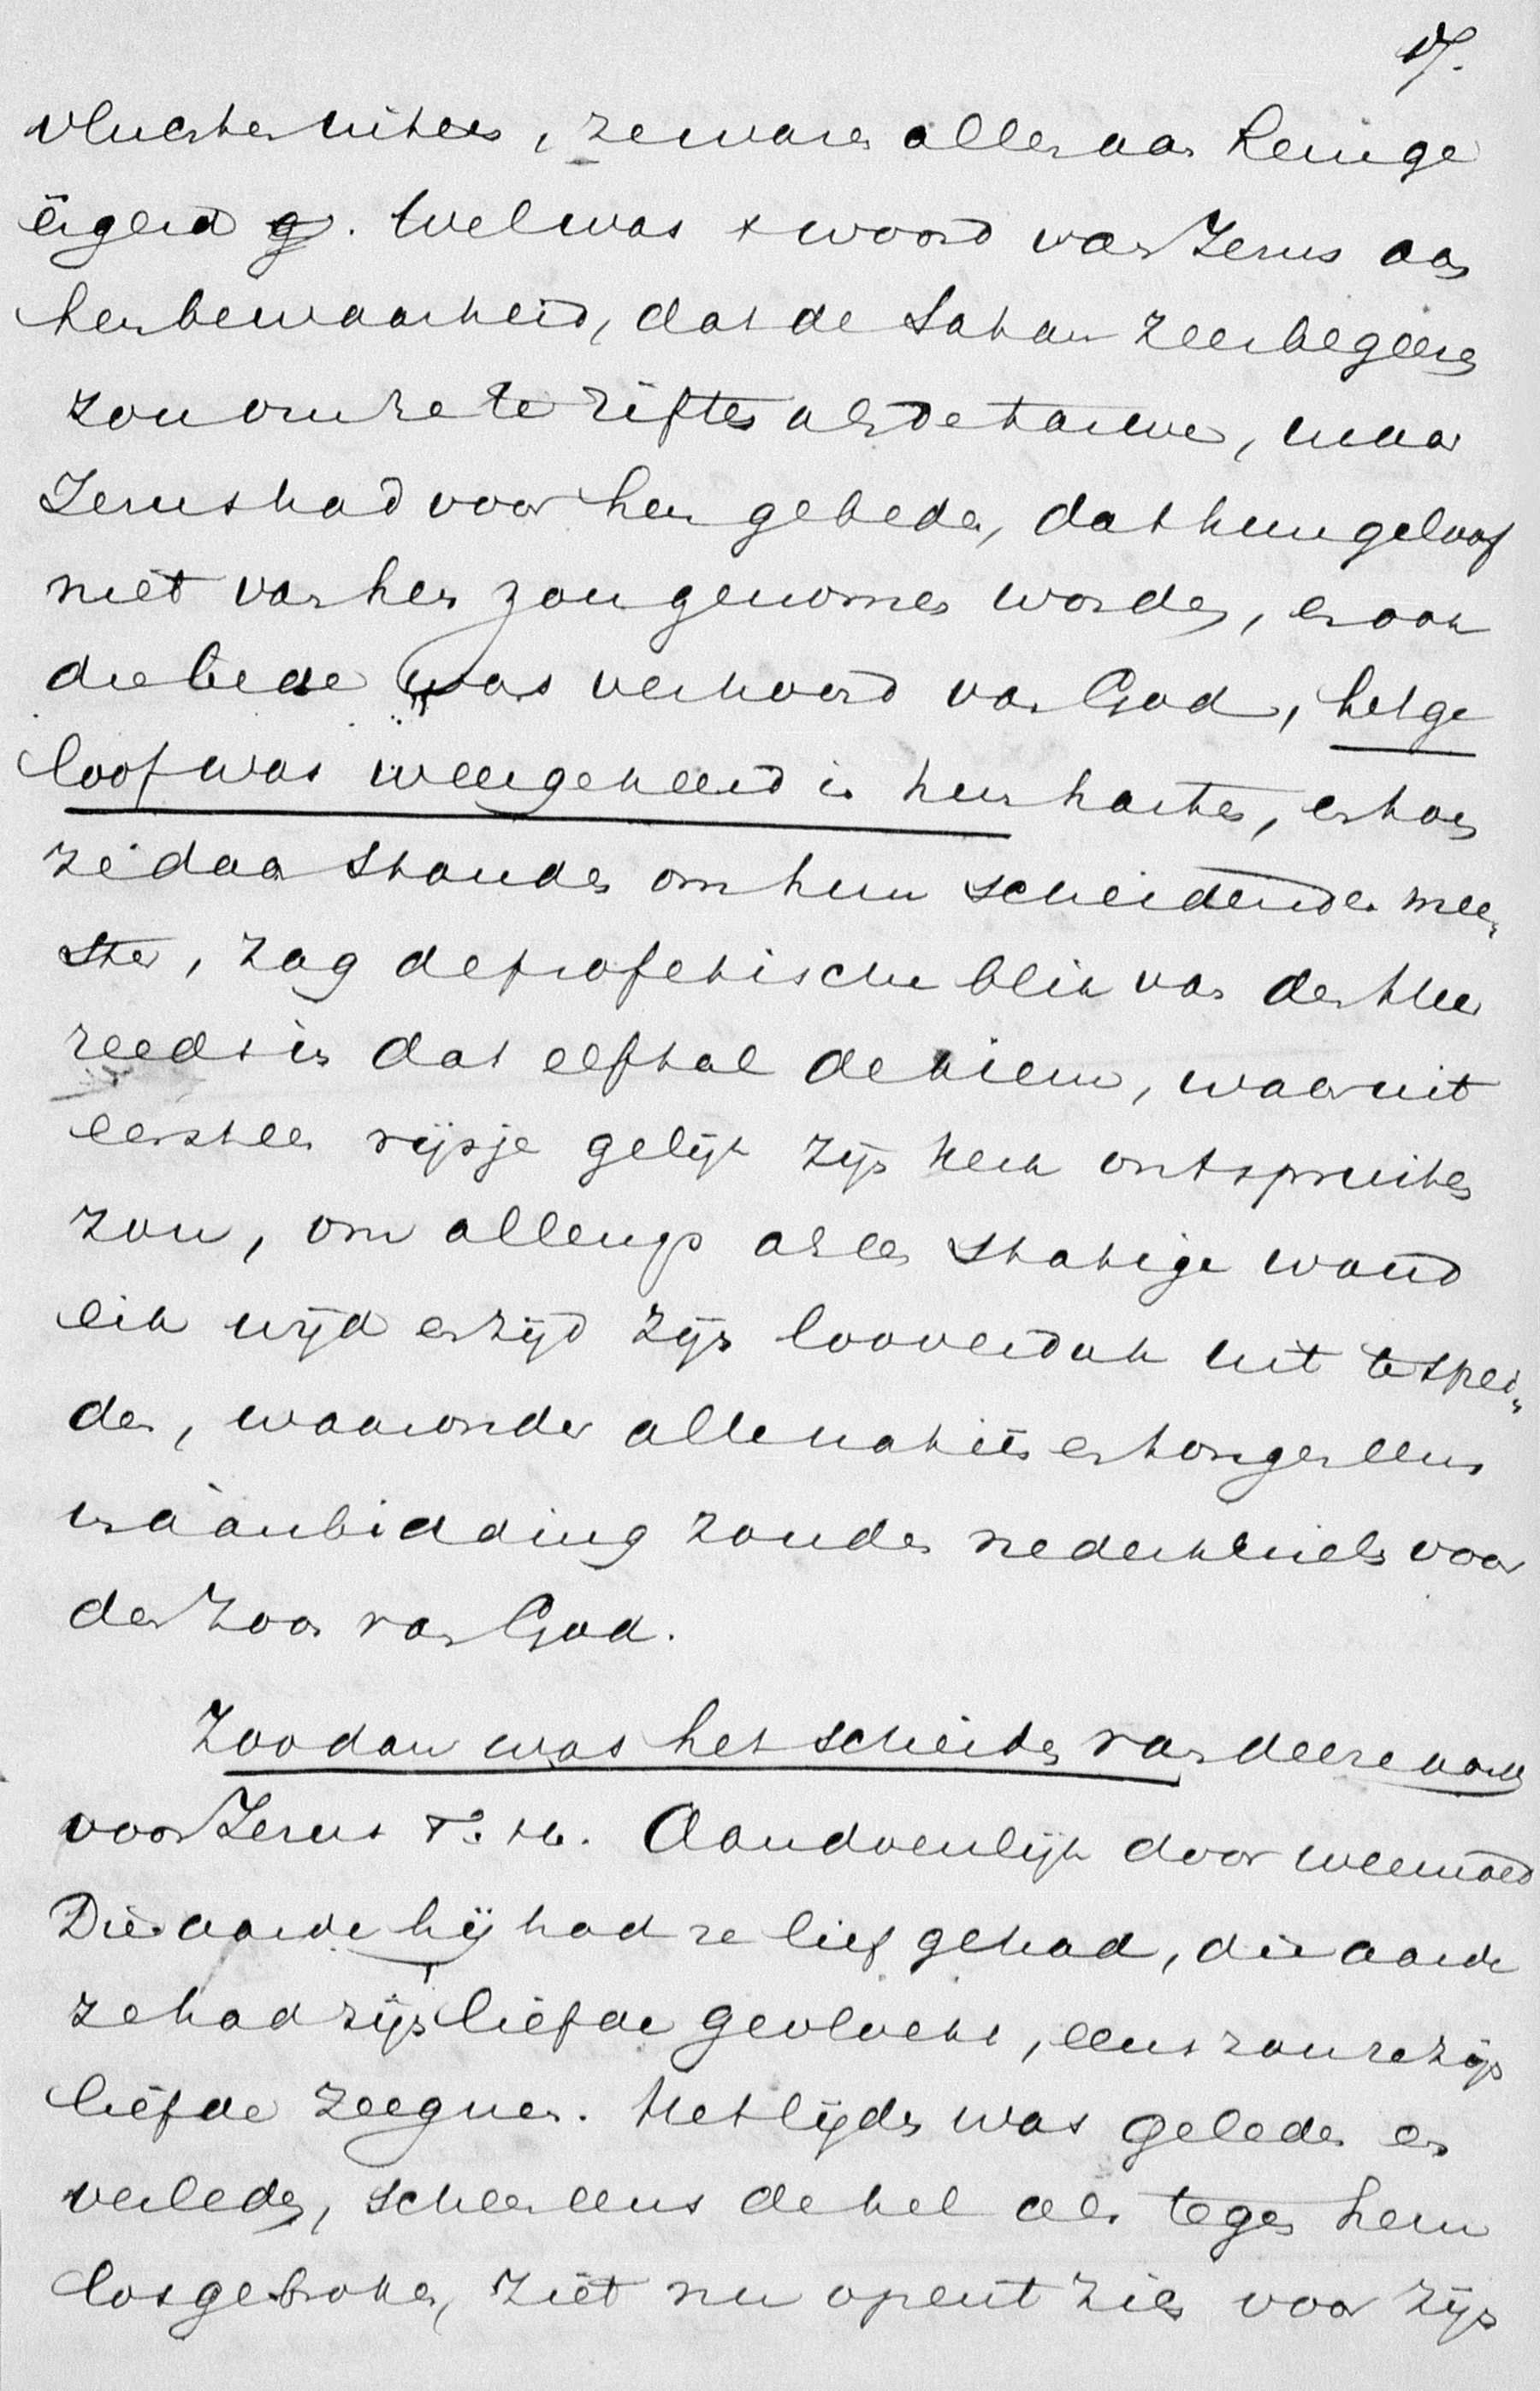 17.
vluchten uiteen, ze waren allen aan Hem ge
ërgerd g. Wel was t woord van Jezus aan
hen bewaarheid, dat de Satan zeer begeeren
zou om ze te ziften als de tarwe, maar
Jezus had voor hen gebeden, dat hun geloof
niet van hen zou genomen worden, en ook
die bede was verhoord van God, het ge
loof was weergekeerd in hun harten, en toen
ze daar stonden om hun scheidenden mee„
ster, zag de profetische blik van den Heer
reeds in dat elftal de kiem, waaruit
eerst een rijsje gelijk zijn Kerk ontspruiten
zou, om allengs als een statige woud
eik wijd en zijd zijn looverdak uit te sprei„
den, waaronder alle natiën en tongen eens
in aanbidding zouden nederknielen voor
den Zoon van God.
Zoo dan was het scheiden van deere aarde
voor Jezus T. H. Aandoenlijk door weemoed
Die aarde hij had ze lief gehad, die aarde
ze had zijn liefde gevloekt, eens zou ze zijn
liefde zeegnen. Het lijden was geleden en
verleden, scheen eens de hel als tegen hem
losgebroken, ziet nu opent zich voor zijn